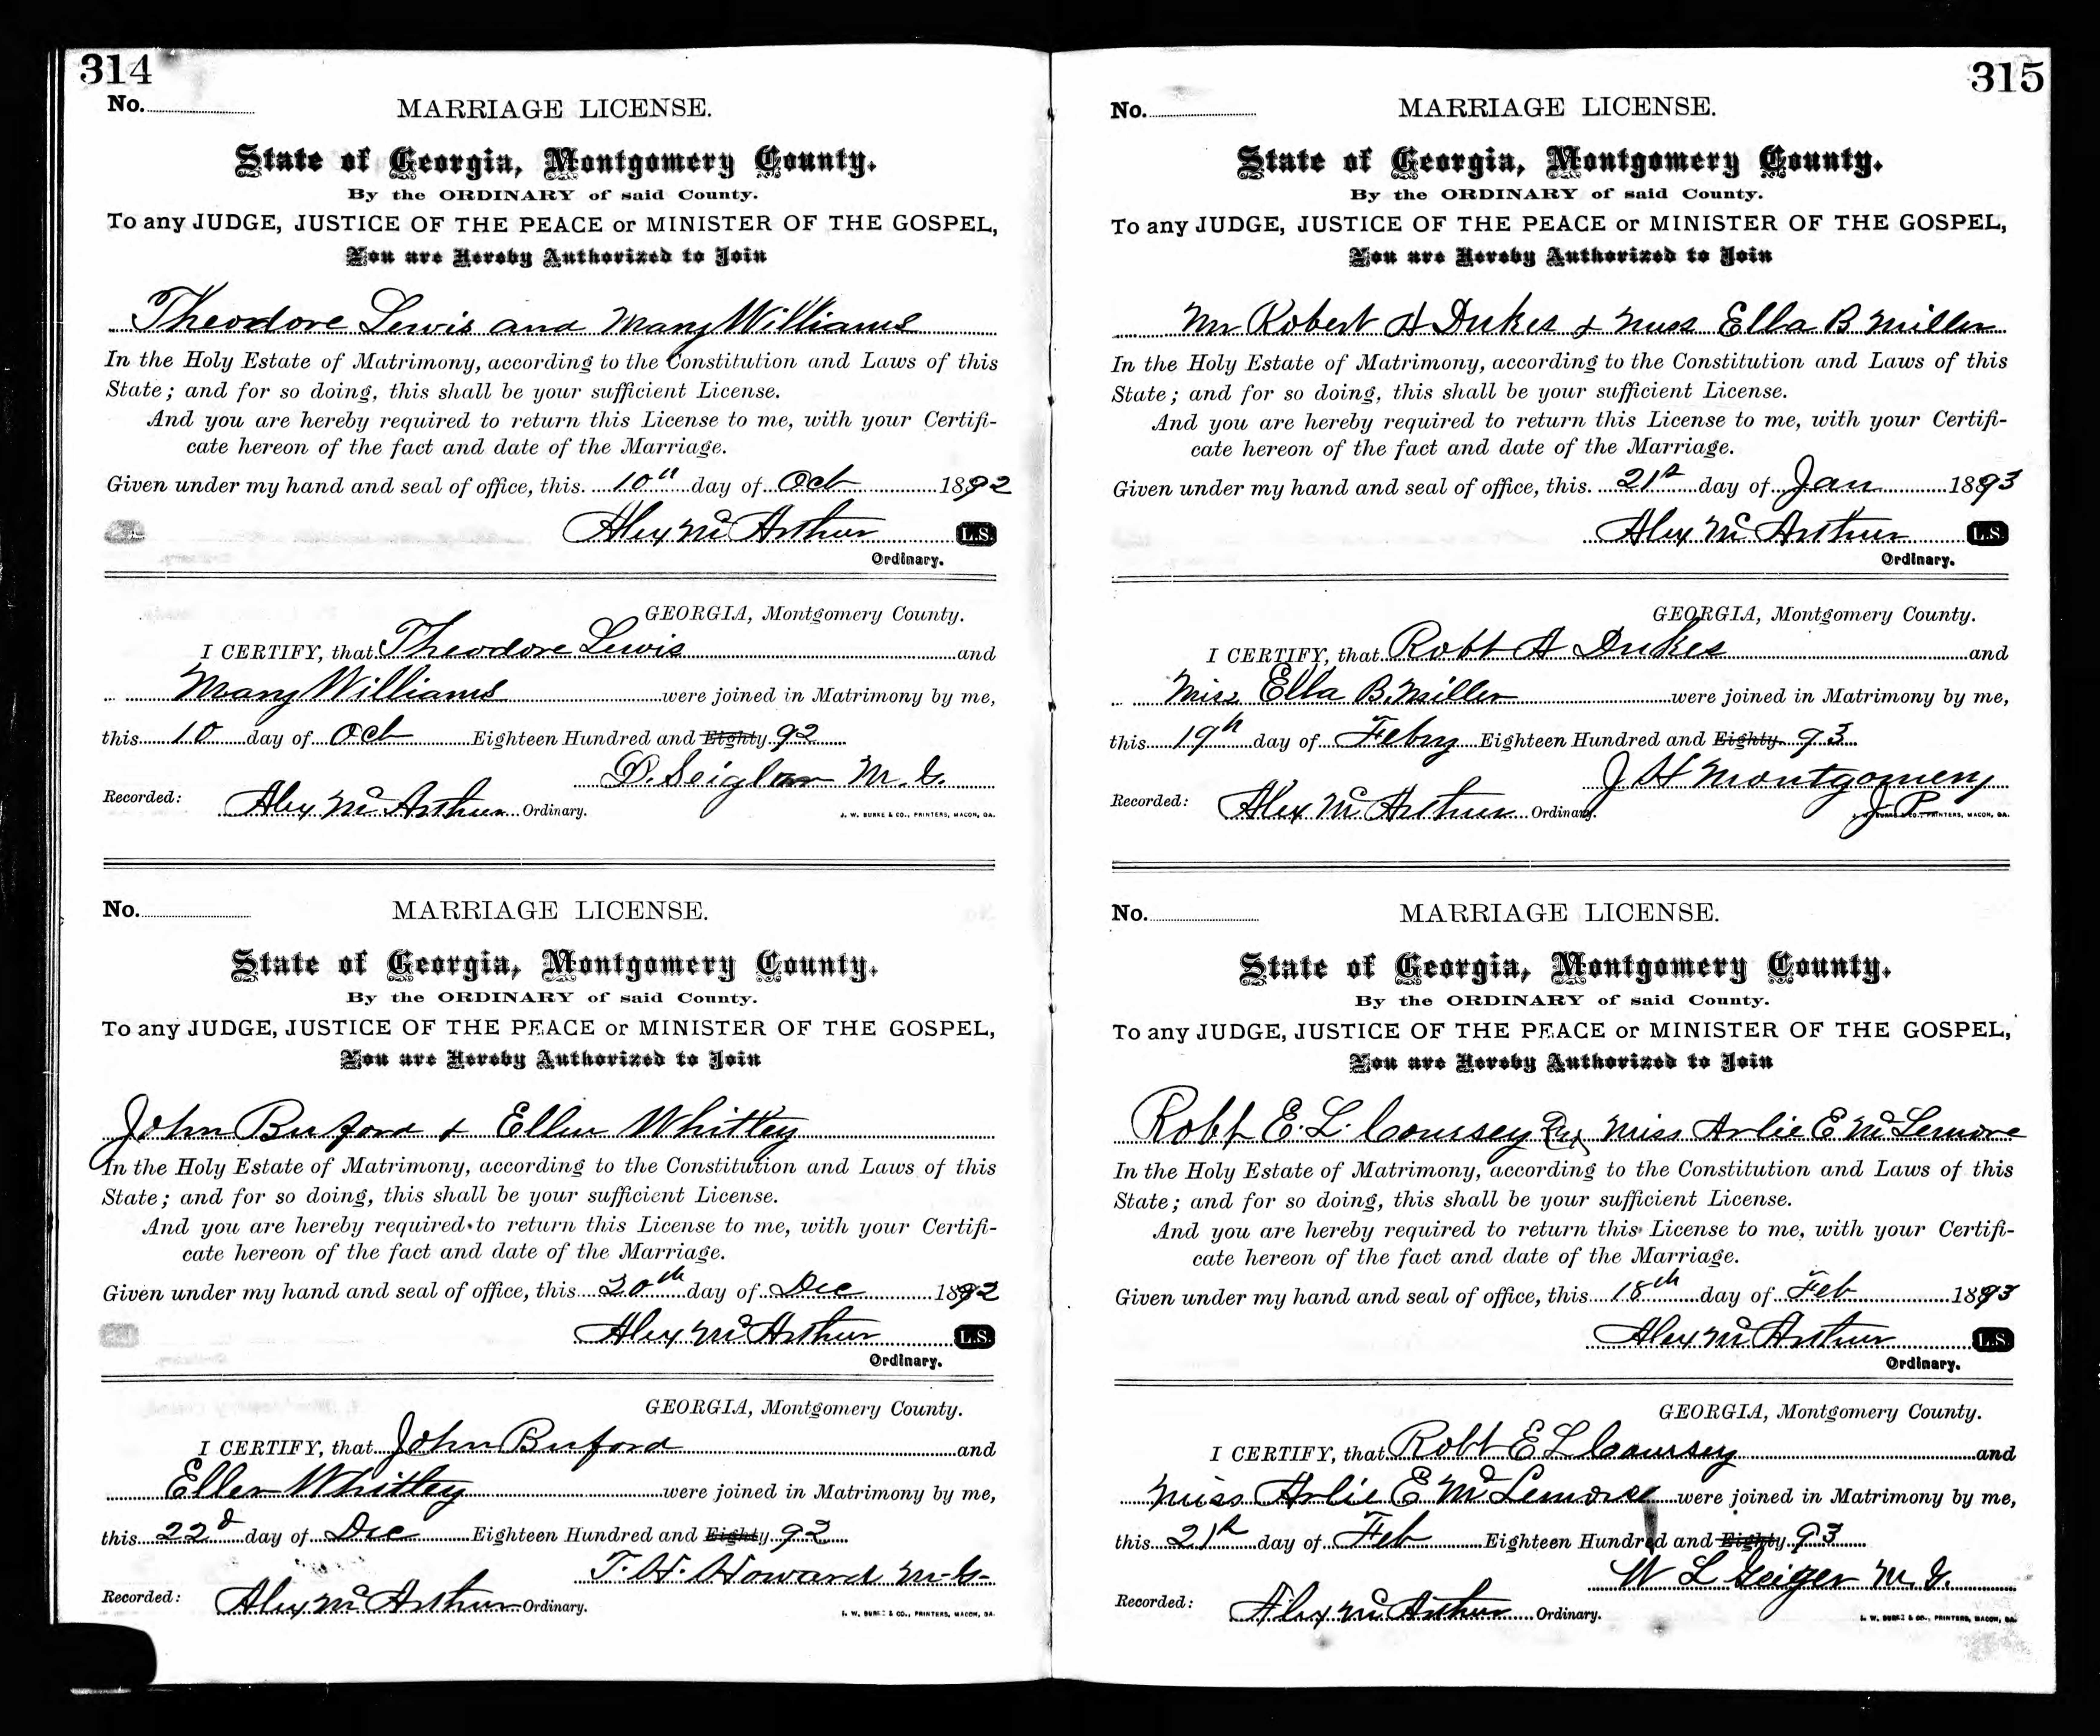 314
No.
MARRIAGE LICENSE.
State of Georgia, Montgomery County.
By the ORDINARY of said County.
To any JUDGE, JUSTICE OF THE PEACE or MINISTER OF THE GOSPEL,
You are Hereby Authorized to Join
Theodore Lewis and Mary Williams
In the Holy Estate of Matrimony, according to the Constitution and Laws of this
State; and for so doing, this shall be your sufficient License.
And you are hereby required to return this License to me, with your Certifi-
cate hereon of the fact and date of the Marriage.
Given under my hand and seal of office, this 10th day of Oct 1892
Alex McArthur L.S.
Ordinary.
GEORGIA, Montgomery County.
I CERTIFY, that Theodore Lewis and
Mary Williams were joined in Matrimony by me,
this 10 day of Oct Eighteen Hundred and Eighty 92
D. Seiglar M. G.
Recorded: Alex McArthur Ordinary.
J. W. BURKE & CO., PRINTERS, MACON, GA.
No.
MARRIAGE LICENSE.
State of Georgia, Montgomery County.
By the ORDINARY of said County.
To any JUDGE, JUSTICE OF THE PEACE or MINISTER OF THE GOSPEL,
You are Hereby Authorized to Join
John Buford & Ellen Whitley
In the Holy Estate of Matrimony, according to the Constitution and Laws of this
State; and for so doing, this shall be your sufficient License.
And you are hereby required to return this License to me, with your Certifi-
cate hereon of the fact and date of the Marriage.
Given under my hand and seal of office, this 20th day of Dec 1892
Alex McArthur L.S.
Ordinary.
GEORGIA, Montgomery County.
I CERTIFY, that John Buford and
Ellen Whitley were joined in Matrimony by me,
this 22d day of Dec Eighteen Hundred and Eighty 92
T. H. Howard M. G.
Recorded: Alex McArthur Ordinary.
J. W. BURKE & CO., PRINTERS, MACON, GA.
315
No.
MARRIAGE LICENSE.
State of Georgia, Montgomery County.
By the ORDINARY of said County.
To any JUDGE, JUSTICE OF THE PEACE or MINISTER OF THE GOSPEL,
You are Hereby Authorized to Join
Mr Robert A Dukes & Miss Ella B Miller
In the Holy Estate of Matrimony, according to the Constitution and Laws of this
State; and for so doing, this shall be your sufficient License.
And you are hereby required to return this License to me, with your Certifi-
cate hereon of the fact and date of the Marriage.
Given under my hand and seal of office, this 21st day of Jan 1893
Alex McArthur L.S.
Ordinary.
GEORGIA, Montgomery County.
I CERTIFY, that Robt A Dukes and
Miss Ella B. Miller were joined in Matrimony by me,
this 19th day of Febry Eighteen Hundred and Eighty 93
J H Montgomery
J P
Recorded: Alex McArthur Ordinary.
J. W. BURKE & CO., PRINTERS, MACON, GA.
No.
MARRIAGE LICENSE.
State of Georgia, Montgomery County.
By the ORDINARY of said County.
To any JUDGE, JUSTICE OF THE PEACE or MINISTER OF THE GOSPEL,
You are Hereby Authorized to Join
Robt E. L. Coursey Miss Arlie E McLemore
In the Holy Estate of Matrimony, according to the Constitution and Laws of this
State; and for so doing, this shall be your sufficient License.
And you are hereby required to return this License to me, with your Certifi-
cate hereon of the fact and date of the Marriage.
Given under my hand and seal of office, this 18th day of Feb 1893
Alex McArthur L.S.
Ordinary.
GEORGIA, Montgomery County.
I CERTIFY, that Robt E L Coursey and
Miss Arlie E McLemore were joined in Matrimony by me,
this 21st day of Feb Eighteen Hundred and Eighty 93
W L Geiger M. G.
Recorded: Alex McArthur Ordinary.
J. W. BURKE & CO., PRINTERS, MACON, GA.